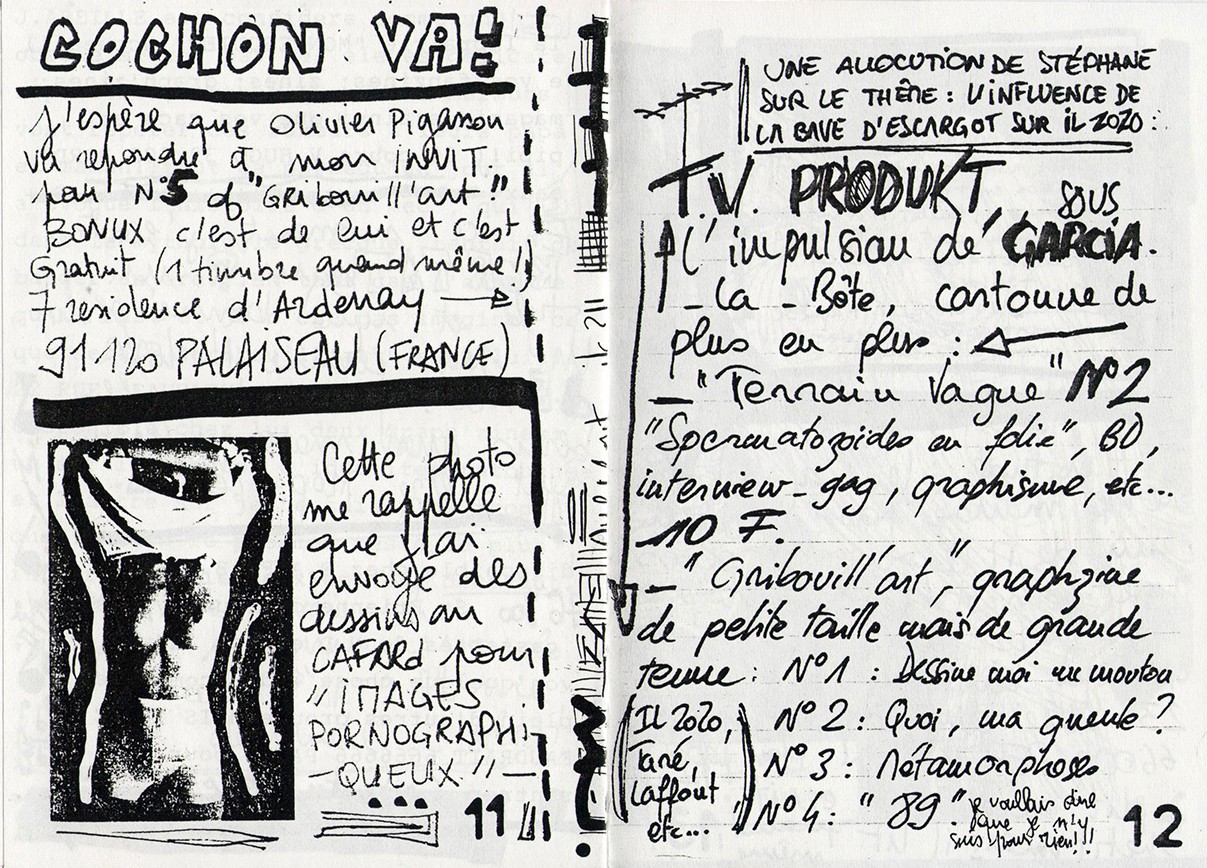 COCHON VA!
J'espère que Olivier Pigasson
va repondre à mon INVIT.
pour N°5 of "GRibouill'art".
BONUX c'est de lui et c'est
Gratuit (1 timbre quand même!)
7 residence d'Ardenay
91120 PALAISEAU (FRANCE)
Cette photo
me rappelle
que j'ai
envoyé des
dessins au
CAFARd pour
"IMAGES
PORNOGRAPHI-
-QUEUX"-
...
11
UNE ALLOCUTION DE STÉPHANE
SUR LE THÊME : L'INFLUENCE DE
LA BAVE D'ESCARGOT SUR IL 2020 :
T.V. PRODUKT, SOUS
l'impulsion de GARCIA.
- La - Bête, cartonne de
plus en plus :
- "Terrain Vague" N°2
"Spermatozoïdes en folie", BD,
interview-gag, graphisme, etc...
10 F.
- "Gribouill'art", graphzine
de petite taille mais de grande
tenue : N°1 : Dessine moi un mouton
(IL 2020, N°2 : Quoi, ma gueule ?
Taré, N°3 : Métamorphoses
Laffout N°4 : "89".
etc...)
je voullais dire
que je n'y
suis pour rien!!!
12